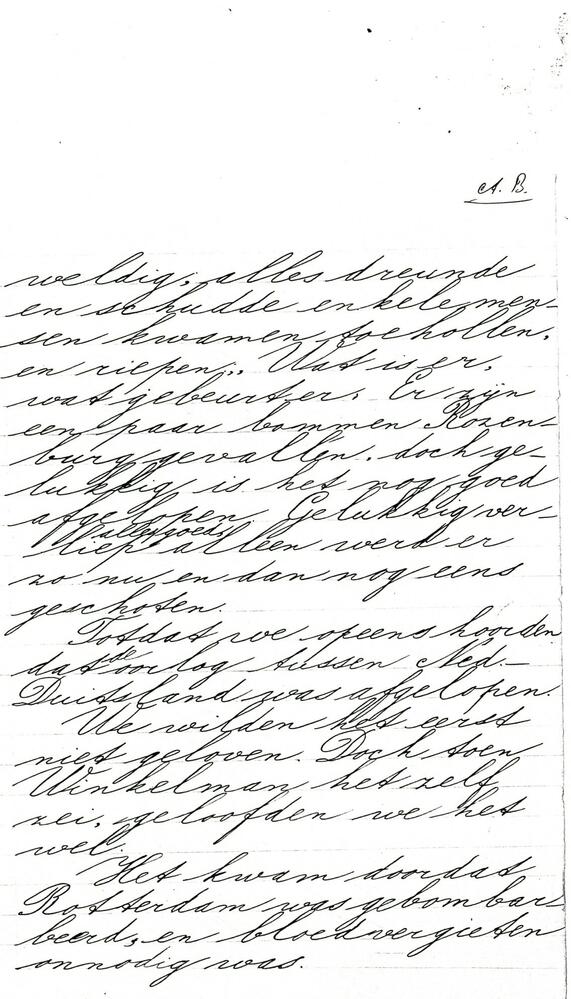 A. B.
weldig, alles dreunde
en schudde enkele men-
sen kwamen toehollen,
en riepen,, Wat is er,
wat gebeurt er. Er zijn
een paar bommen Rozen-
burg gevallen. doch ge-
lukkig is het nog goed
afgelopen. Gelukkig ver-
alles goed,
liep alleen werd er
zo nu en dan nog eens
geschoten.
Totdat we opeens hoorden
dat de oorlog tussen Ned.-
Duitsland was afgelopen.
We wilden het eerst
niet geloven. Doch toen
Winkelman het zelf
zei, geloofden we het
wel.
Het kwam doordat
Rotterdam was gebombar-
deerd, en bloedvergieten
onnodig was.